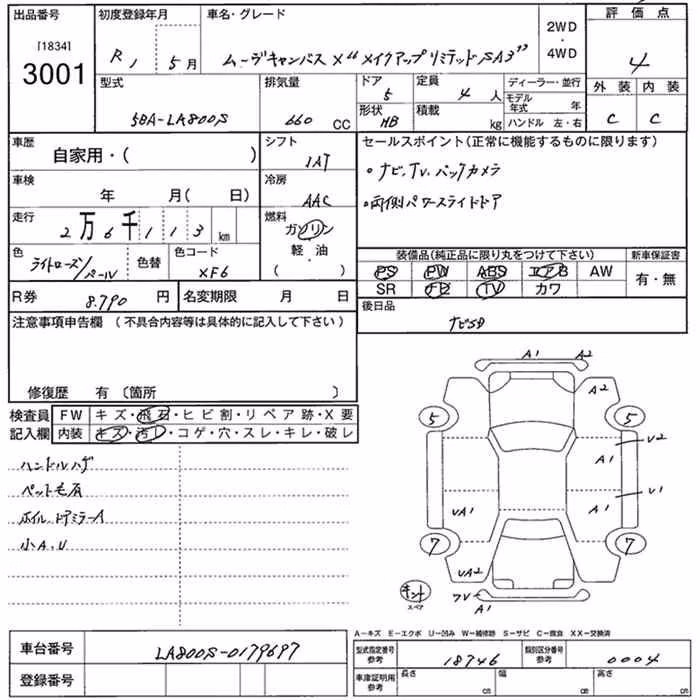 出品番号
[1834]
3001
初度登録年月
R1 5月
車名・グレード
ムーヴキャンバス X"メイクアップリミテッドSA3"
2WD
・
4WD
評価点
4
外装 内装
C C
型式
5BA-LA800S
排気量
660 CC
ドア
5
形状
HB
定員
4 人
積載
kg
ディーラー・並行
モデル年式 年
ハンドル 左・右
車歴
自家用・( )
シフト
IAT
車検
年 月( 日)
冷房
AAC
走行
2万6千113km
燃料
ガソリン
軽・油
( ・ )
色
ライトローズ/パール
色替
色コード
XF6
R券 8.790 円
名変期限 月 日
セールスポイント(正常に機能するものに限ります)
・ナビ、TV、バックカメラ
・両側パワースライドドア
装備品(純正品に限り丸をつけて下さい)
新車保証書
PS PW ABS エアB AW
SR ナビ TV カワ
有・無
後日品
ナビSD
注意事項申告欄 (不具合内容等は具体的に記入して下さい)
修復歴 有〔箇所 〕
検査員記入欄
FW キズ・飛石・ヒビ割・リペア跡・X要
内装 キズ・汚レ・コゲ・穴・スレ・キレ・破レ
ハンドルハゲ
ペット毛有
ホイル、ドアミラーA
小A、U
A1 A2
A2
5 5
U2
A1
U1
UA1 A1
7 7
UA2
キット
スペア
フU
A1
A-キズ E-エクボ U-凹み W-補修跡 S-サビ C-腐食 XX-交換済
車台番号 LA800S-0179697
登録番号
型式指定番号
参考
18746
類別区分番号
参考
0004
車庫証明用
参考
長さ cm
幅 cm
高さ cm